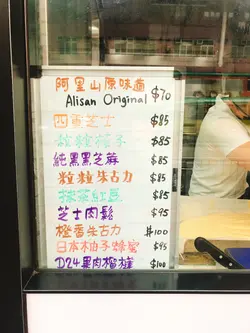 阿里山原味鹵 $70
Alisan Original
四重芝士 $85
粒粒椰子 $85
純黑黑芝麻 $85
粒粒朱古力 $85
抹茶紅豆 $85
芝士肉鬆 $95
橙香朱古力 $100
日本柚子蜂蜜 $95
D24果肉榴槤 $100